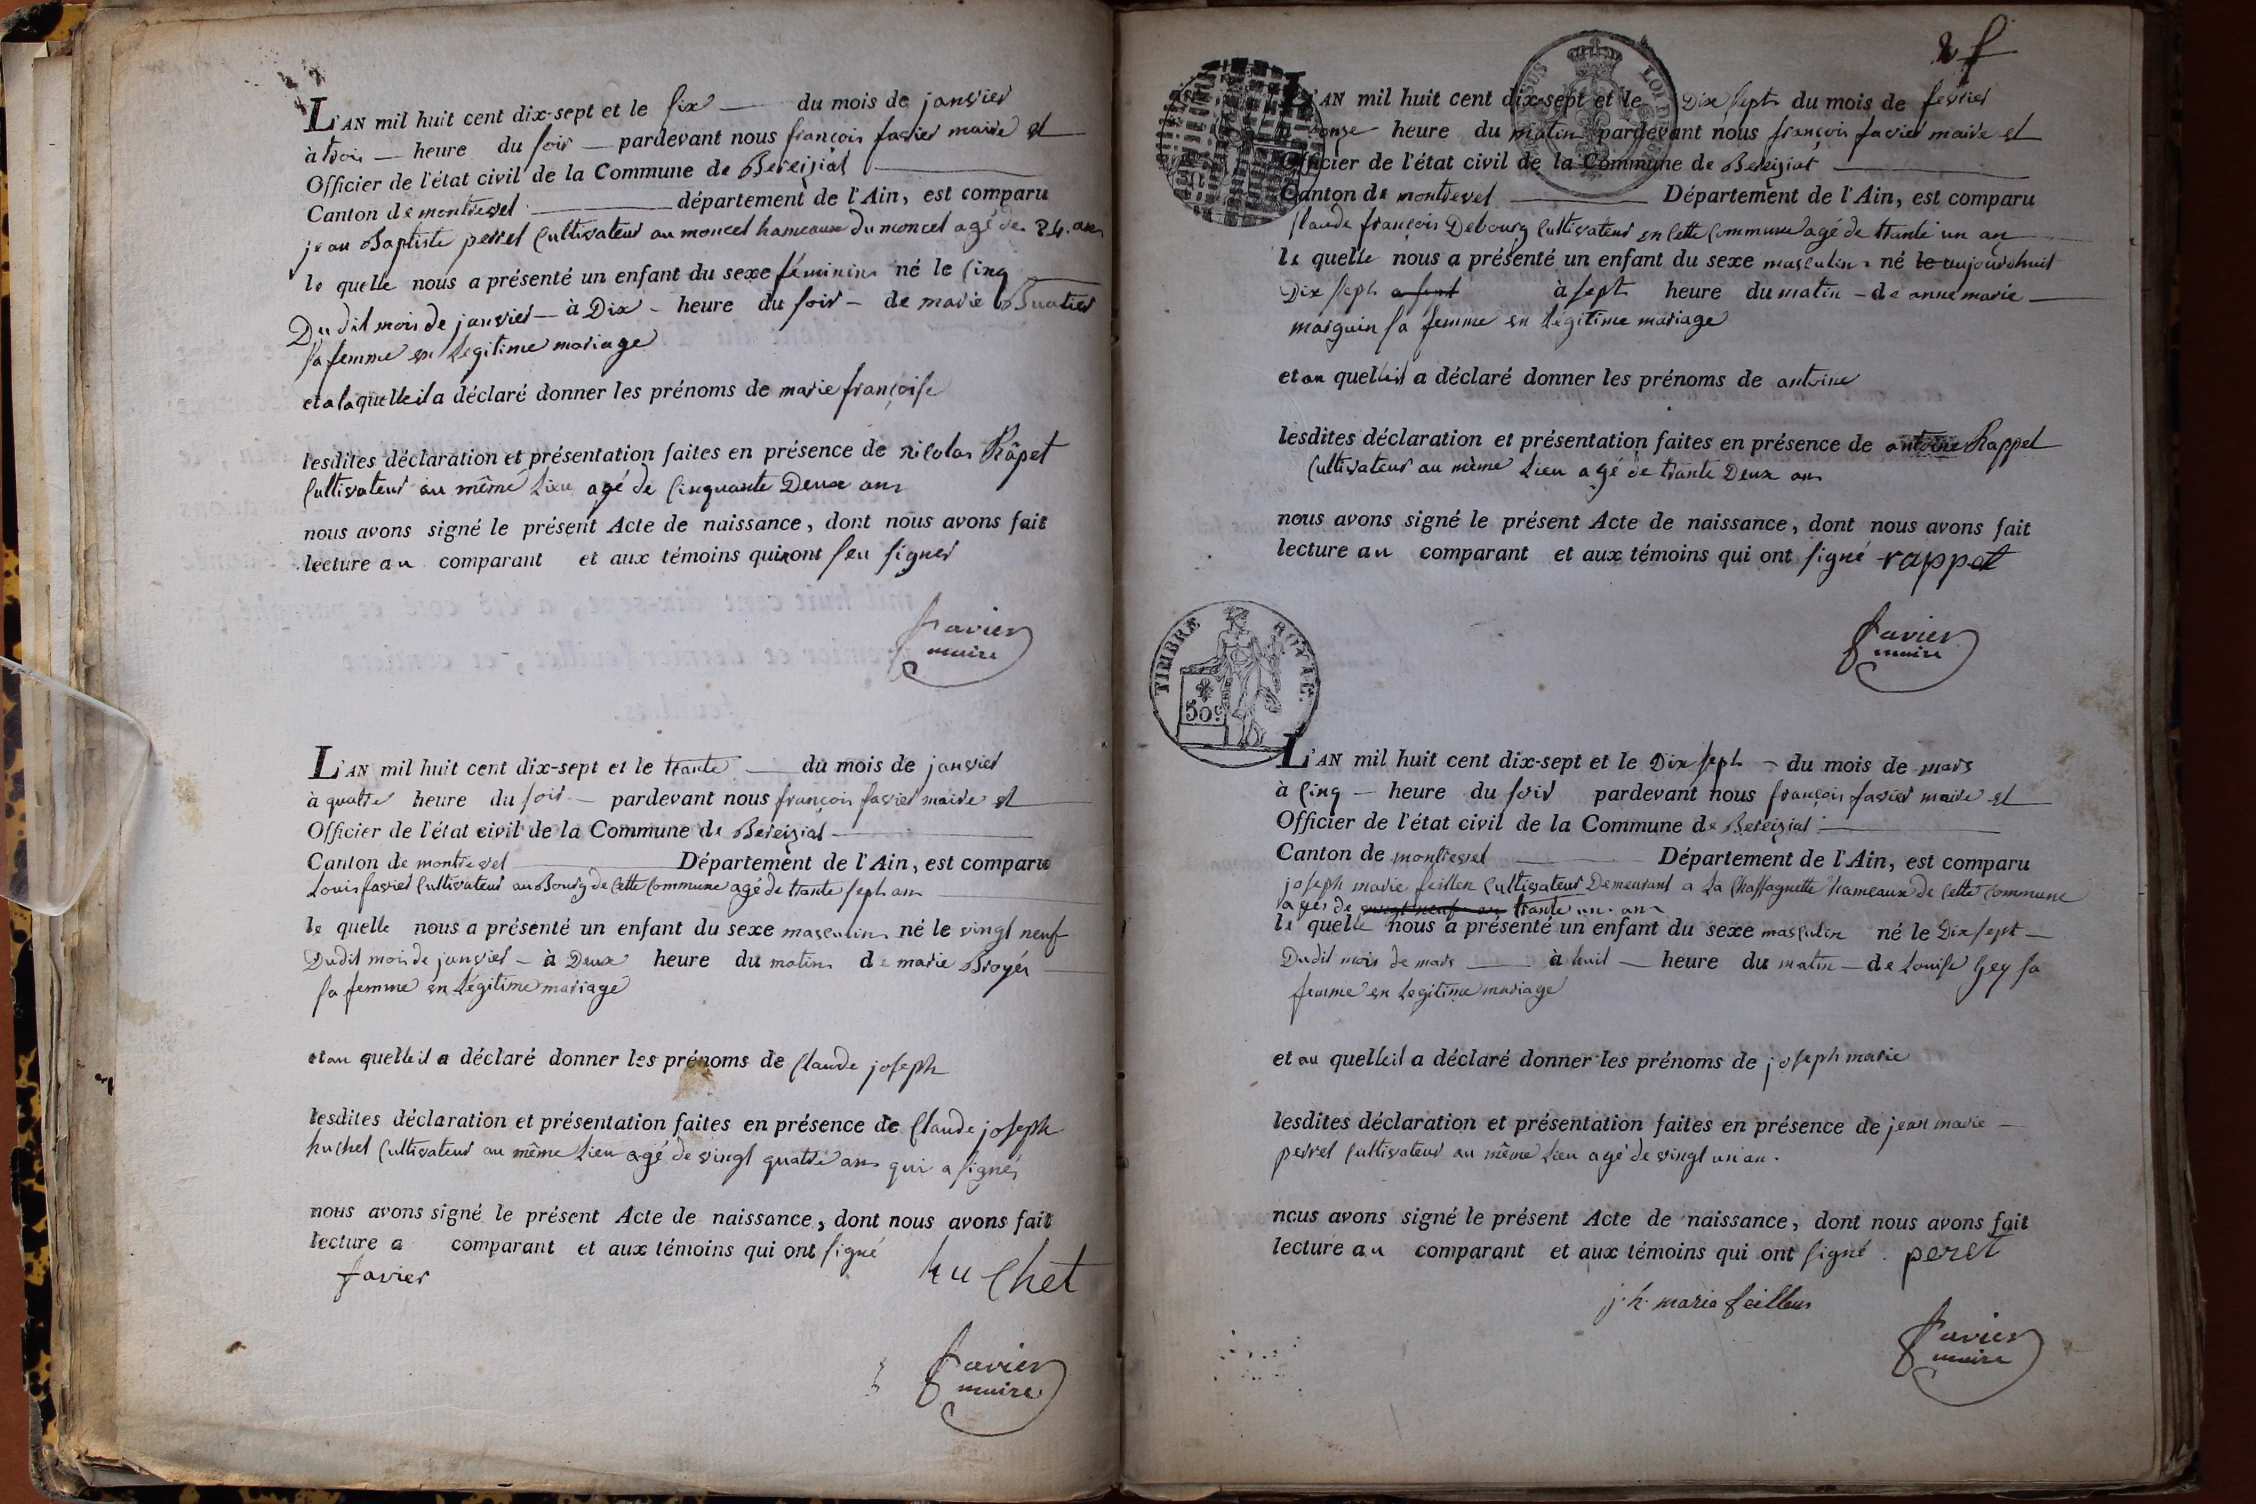 L'AN mil huit cent dix-sept et le six du mois de janvier
à trois heure du soir pardevant nous françois favier maire et
Officier de l'état civil de la Commune de Bereiziat
Canton de montrevel département de l'Ain, est comparu
jean Baptiste perret Cultivateur au moncel hameaux du moncel agé de 34 ans
le quelle nous a présenté un enfant du sexe féminin né le Cinq
Du dit mois de janvier à Dix heure du soir de marie Buatier
sa femme en Legitime mariage
et a laquelle il a déclaré donner les prénoms de marie françoise
lesdites déclaration et présentation faites en présence de nicolas Râpet
Cultivateur au même Lieu agé de Cinquante Deux ans
nous avons signé le présent Acte de naissance, dont nous avons fait
lecture au comparant et aux témoins qui nont seu signer
favier
maire
L'AN mil huit cent dix-sept et le trante du mois de janvier
à quatre heure du soir pardevant nous françois favier maire et
Officier de l'état civil de la Commune de Bereiziat
Canton de montrevel Département de l'Ain, est comparu
Louis favier Cultivateur au Bourg de Cette Commune agé de trante sept ans
le quelle nous a présenté un enfant du sexe masculin né le vingt neuf
Dudit mois de janvier à Deux heure du matin de marie Broyer
sa femme en Légitime mariage
et au quelle il a déclaré donner les prénoms de Claude joseph
lesdites déclaration et présentation faites en présence de Claude joseph
huchet Cultivateur au même Lieu agé de vingt quatre ans qui a signés
nous avons signé le présent Acte de naissance, dont nous avons fait
lecture a comparant et aux témoins qui ont signé
favier huchet
favier
maire
2 f
L'AN mil huit cent dix-sept et le Dix sept du mois de fevrier
à onze heure du matin pardevant nous françois favier maire et
Officier de l'état civil de la Commune de Bereiziat
Canton de montrevel Département de l'Ain, est comparu
Claude françois Debourg Cultivateur en Cette Commune agé de trante un an
le quelle nous a présenté un enfant du sexe masculin né le aujourdhuit
Dix sept a sept à sept heure du matin de anne marie
marguin sa femme en Légitime mariage
et au quelle il a déclaré donner les prénoms de antoine
lesdites déclaration et présentation faites en présence de antoine Rappet
Cultivateur au même Lieu agé de trante Deux ans
nous avons signé le présent Acte de naissance, dont nous avons fait
lecture au comparant et aux témoins qui ont signé rappet
favier
maire
TIMBRE ROYAL
50c
L'AN mil huit cent dix-sept et le Dix sept du mois de mars
à Cinq heure du soir pardevant nous françois favier maire et
Officier de l'état civil de la Commune de Bereiziat
Canton de montrevel Département de l'Ain, est comparu
joseph marie feillen Cultivateur Demeurant a La Chassagnette hameaux de Cette Commune
agés de vingt neuf an trante un ans
le quelle nous a présenté un enfant du sexe masculin né le Dix sept
Dudit mois de mars à huit heure du matin de Louise Gey sa
femme en Legitime mariage
et au quelle il a déclaré donner les prénoms de joseph marie
lesdites déclaration et présentation faites en présence de jean marie
perret Cultivateur au même Lieu agé de vingt un an.
nous avons signé le présent Acte de naissance, dont nous avons fait
lecture au comparant et aux témoins qui ont signé. peret
j. h. marie feillens
favier
maire